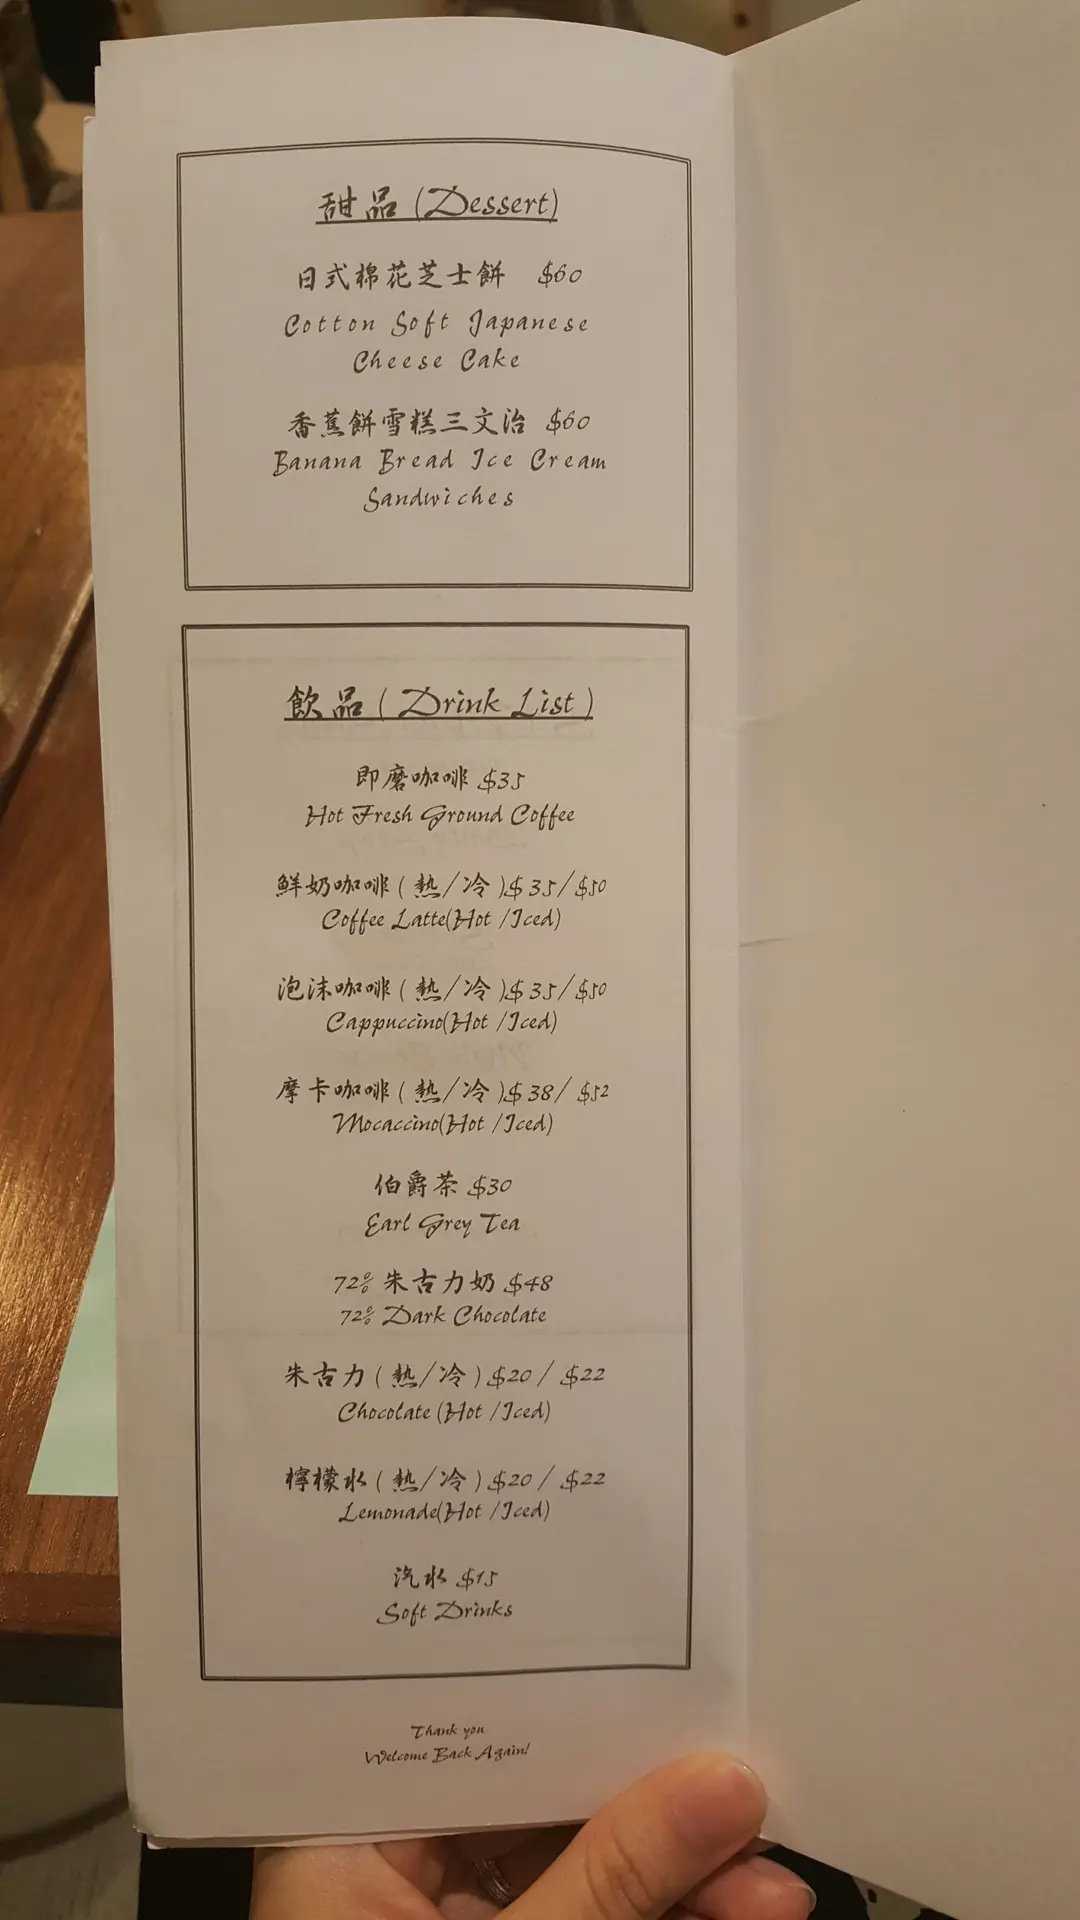 甜品 (Dessert)
日式棉花芝士餅 $60
Cotton Soft Japanese
Cheese Cake
香蕉餅雪糕三文治 $60
Banana Bread Ice Cream
Sandwiches
飲品 ( Drink List )
即磨咖啡 $35
Hot Fresh Ground Coffee
鮮奶咖啡 ( 熱/冷 )$35/$50
Coffee Latte(Hot /Iced)
泡沫咖啡 ( 熱/冷 )$35/$50
Cappuccino(Hot /Iced)
摩卡咖啡 ( 熱/冷 )$38/ $52
Mocaccino(Hot /Iced)
伯爵茶 $30
Earl Grey Tea
72% 朱古力奶 $48
72% Dark Chocolate
朱古力 ( 熱/冷 ) $20 / $22
Chocolate (Hot /Iced)
檸檬水 ( 熱/冷 ) $20 / $22
Lemonade(Hot /Iced)
汽水 $15
Soft Drinks
Thank you
Welcome Back Again!